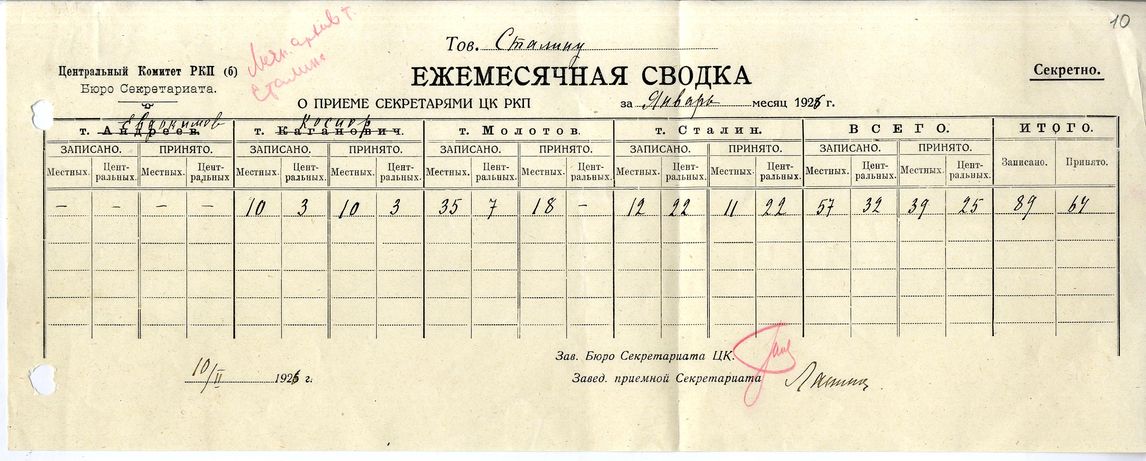 10
Личн. архив т.
Сталина
Тов. Сталину
Центральный Комитет РКП (б)
Бюро Секретариата.
ЕЖЕМЕСЯЧНАЯ СВОДКА
Секретно.
О ПРИЕМЕ СЕКРЕТАРЯМИ ЦК РКП
за Январь месяц 1926 г.
Евдокимов Косиор
т. Андреев. т. Каганович. т. Молотов. т. Сталин. ВСЕГО. ИТОГО.
ЗАПИСАНО. ПРИНЯТО. ЗАПИСАНО. ПРИНЯТО. ЗАПИСАНО. ПРИНЯТО. ЗАПИСАНО. ПРИНЯТО. ЗАПИСАНО. ПРИНЯТО. Записано. Принято.
Местных. Цент-ральных. Местных. Цент-ральных. Местных. Цент-ральных. Местных. Цент-ральных. Местных. Цент-ральных. Местных. Цент-ральных. Местных. Цент-ральных. Местных. Цент-ральных. Местных. Цент-ральных. Местных. Цент-ральных.
– – – – 10 3 10 3 35 7 18 – 12 22 11 22 57 32 39 25 89 64
Зав. Бюро Секретариата ЦК.
10/II 1926 г.
Завед. приемной Секретариата